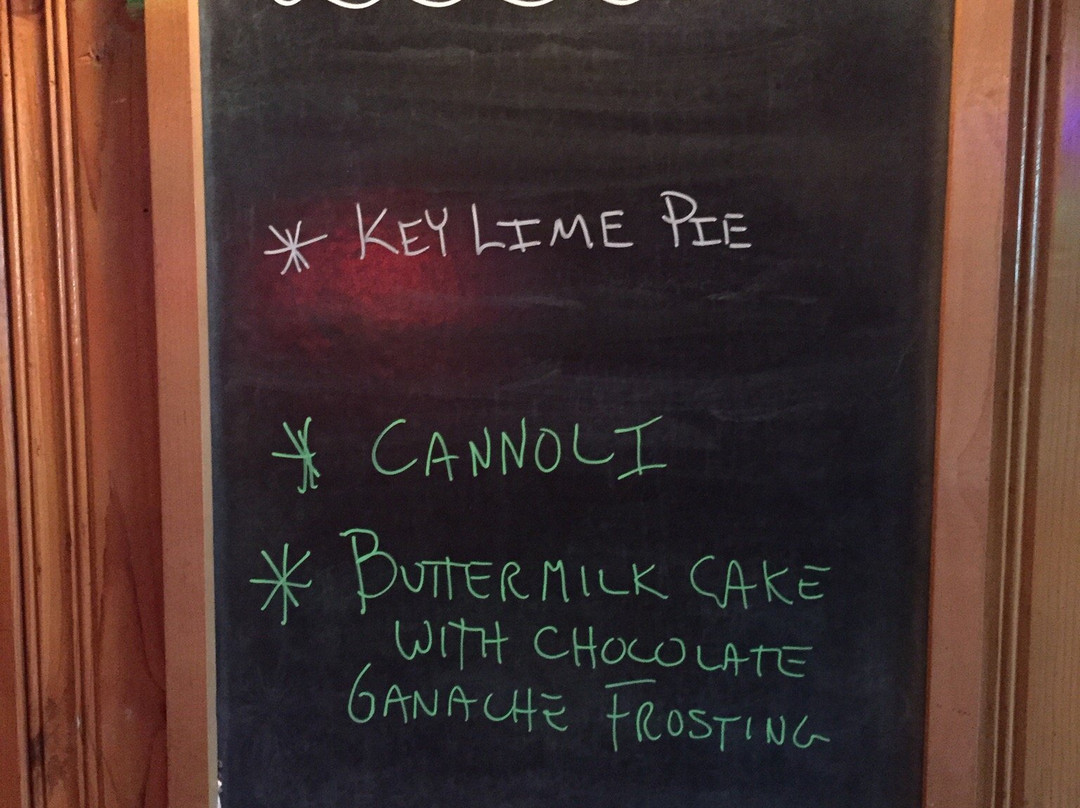 * KEY LIME PIE
* CANNOLI
* BUTTERMILK CAKE
WITH CHOCOLATE
GANACHE FROSTING